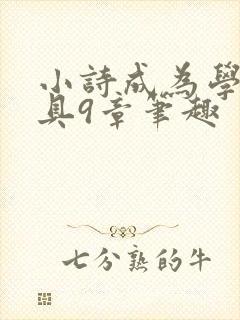 小詩成為學
具9章筆趣
七分熟的牛